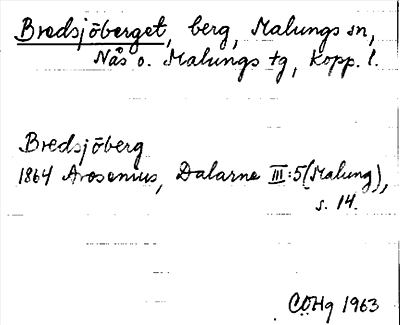 Bredsjöberget, berg, Malungs sn,
Nås o. Malungs tg, Kopp. l.
Bredsjöberg
1864 Arosenius, Dalarne III:5 (Malung),
s. 14.
CÖHg 1963